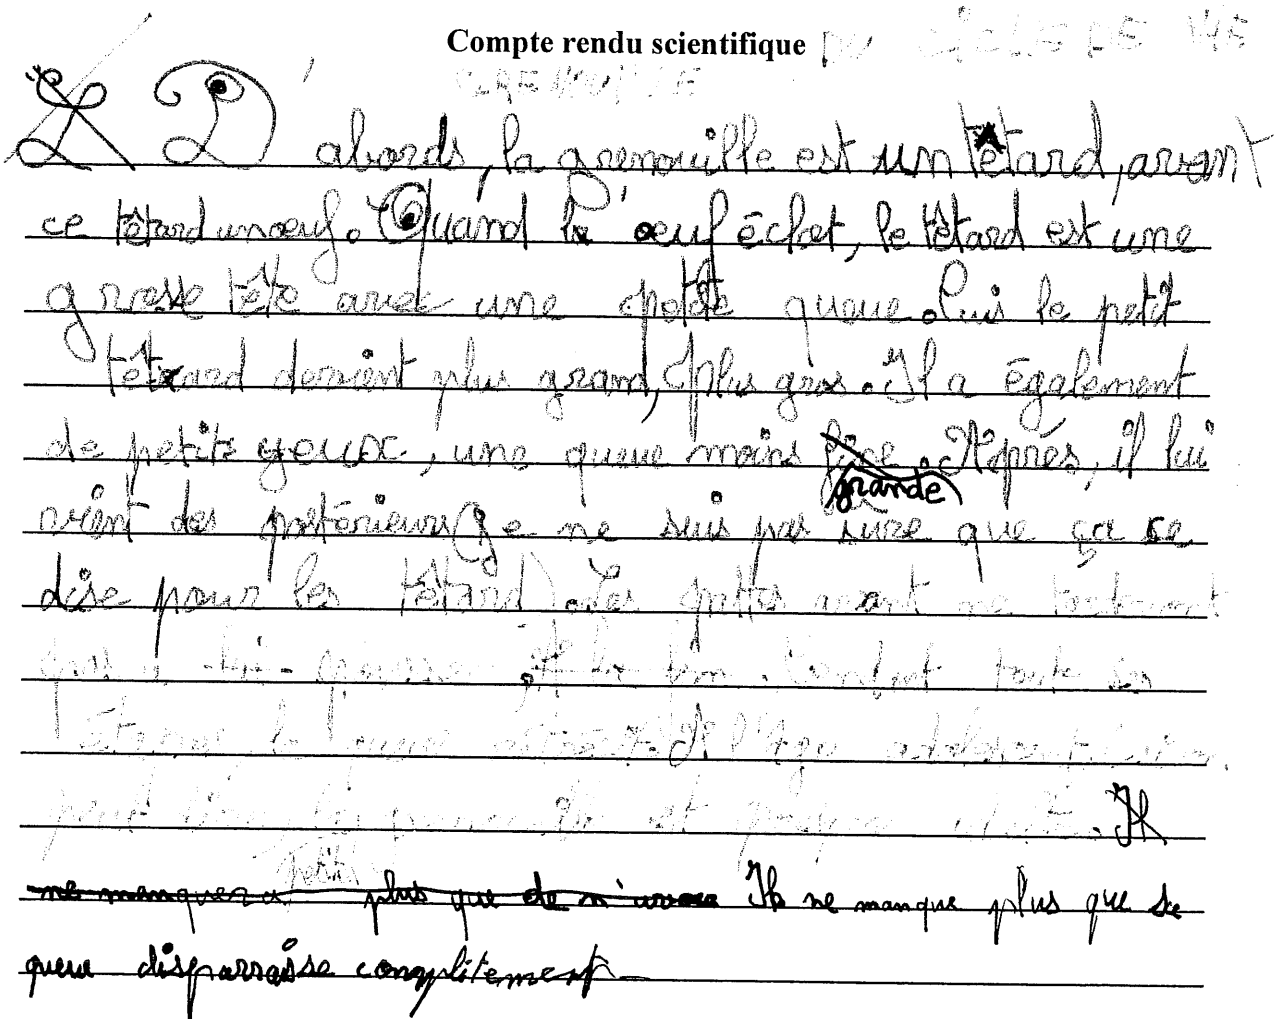 Compte rendu scientifique DU CICLE DE VIE
GRENOUILLE
D'abords, la grenouille est un têtard, avant
ce têtard un œuf. Quand l'œuf éclot, le têtard est une
grosse tête avec une petite queue. Puis le petit
têtard devient plus grand, plus gros. Il a également
de petits yeux, une queue moins fine. Après, il lui
grande
vient des postérieurs (Je ne suis pas sure que ça se
dise pour les têtard). Les pattes avant ne
pas a lui pousser, Pendant toute ses
étapes la queue
petits
Il
ne manquera plus que de Il ne manque plus que sa
queue disparraisse complitement